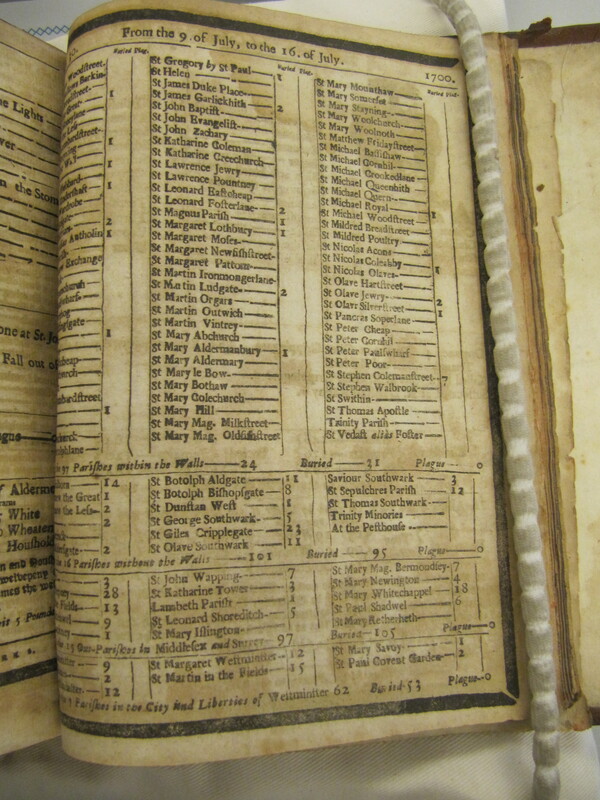 From the 9. of July, to the 16. of July. 1700.
Buried Plag.
St Gregory by St Paul
St Helen 1
St James Duke Place
St James Garlickhith
St John Baptist 2
St John Evangelist
St John Zachary
St Katharine Coleman
St Katharine Creechurch
St Lawrence Jewry
St Lawrence Pountney
St Leonard Eastcheap
St Leonard Fosterlane
St Magnus Parish 2
St Margaret Lothbury 1
St Margaret Moses 1
St Margaret Newfishstreet
St Margaret Pattons
St Martin Ironmongerlane
St Martin Ludgate 2
St Martin Orgars
St Martin Outwich
St Martin Vintrey
St Mary Abchurch
St Mary Aldermanbury 1
St Mary Aldermary
St Mary le Bow
St Mary Bothaw
St Mary Colechurch
St Mary Hill
St Mary Mag. Milkstreet
St Mary Mag. Oldfishstreet
Buried Plag.
St Mary Mounthaw
St Mary Somerset
St Mary Stayning
St Mary Woolchurch
St Mary Woolnoth
St Matthew Fridaystreet
St Michael Bassishaw
St Michael Cornhil
St Michael Crookedlane
St Michael Queenhith
St Michael Quern
St Michael Royal
St Michael Woodstreet 1
St Mildred Breadstreet
St Mildred Poultry
St Nicolas Acons
St Nicolas Coleabby
St Nicolas Olaves 1
St Olave Hartstreet
St Olave Jewry 2
St Olave Silverstreet 1
St Pancras Soperlane
St Peter Cheap
St Peter Cornhil
St Peter Paulswharf
St Peter Poor
St Stephen Colemanstreet 7
St Stephen Walbrook
St Swithin
St Thomas Apostle
Trinity Parish
St Vedast alias Foster
97 Parishes within the Walls 24 Buried 21 Plague 0
St Botolph Aldgate 11
St Botolph Bishopsgate 8
St Dunstan West 1
St George Southwark 5
St Giles Cripplegate 23
St Olave Southwark 11
Saviour Southwark 3
St Sepulchres Parish 12
St Thomas Southwark
Trinity Minories
At the Pesthouse
16 Parishes without the Walls 101 Buried 95 Plague 0
St John Wapping 7
St Katharine Tower 3
Lambeth Parish 1
St Leonard Shoreditch 5
St Mary Islington
St Mary Mag. Bermondsey 7
St Mary Newington 4
St Mary Whitechappel 18
St Paul Shadwel 6
St Mary Retherheth
Parishes in Middlesex and Surrey 97 Buried 105 Plague 0
St Margaret Westminster 12
St Martin in the Fields 15
St Mary Savoy 1
St Paul Covent Garden 2
Parishes in the City and Liberties of Westminster 62 Buried 53 Plague 0